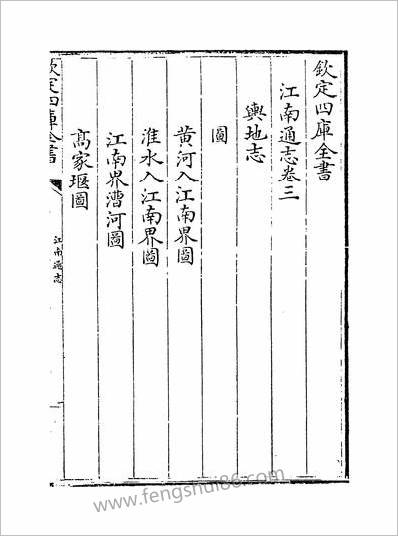 欽定四庫全書
江南通志卷三
輿地志
圖
黄河入江南界圖
淮水入江南界圖
江南界漕河圖
髙家堰圖
欽定四庫全書
江南通志
一
www.fengshui86.com